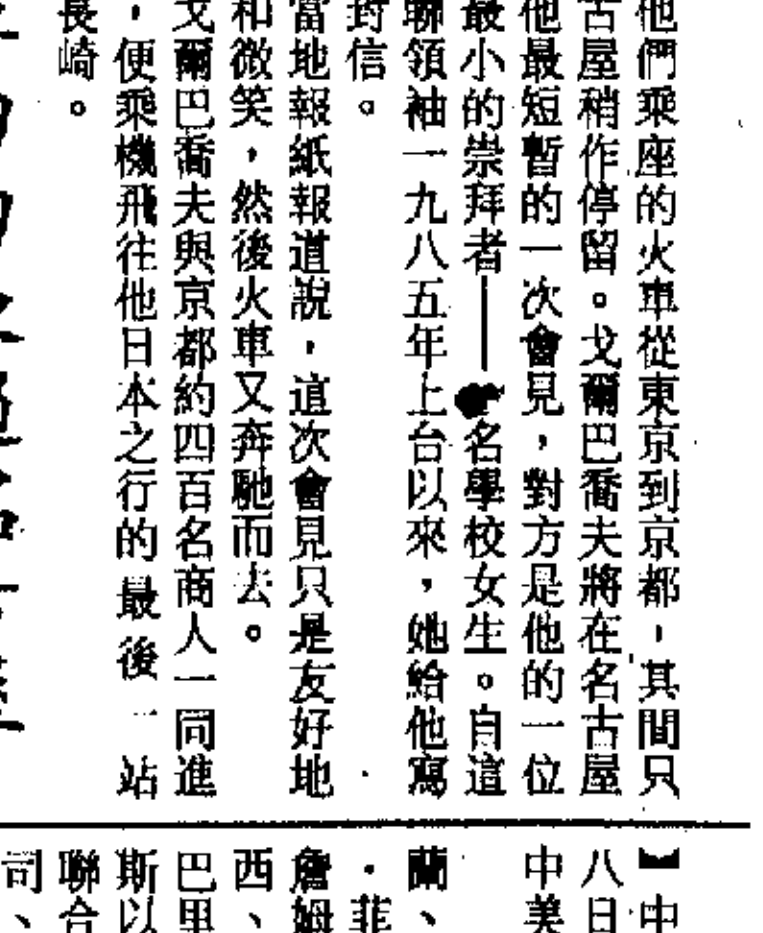 他們乘座的火車從東京到京都,其間只
古屋稍作停留。戈爾巴喬夫將在名古屋
他最短暫的一次會見,對方是他的一位
最小的崇拜者——名學校女生。自這
聯領袖一九八五年上台以來,她給他寫
封信。
當地報紙報道說,這次會見只是友好地
和微笑,然後火車又奔馳而去。
戈爾巴喬夫與京都約四百名商人一同進
,便乘機飛往他日本之行的最後一站
長崎。
】中
八日
中美
蘭、
·菲
詹姆
西、
巴里
斯以
聯合
司、